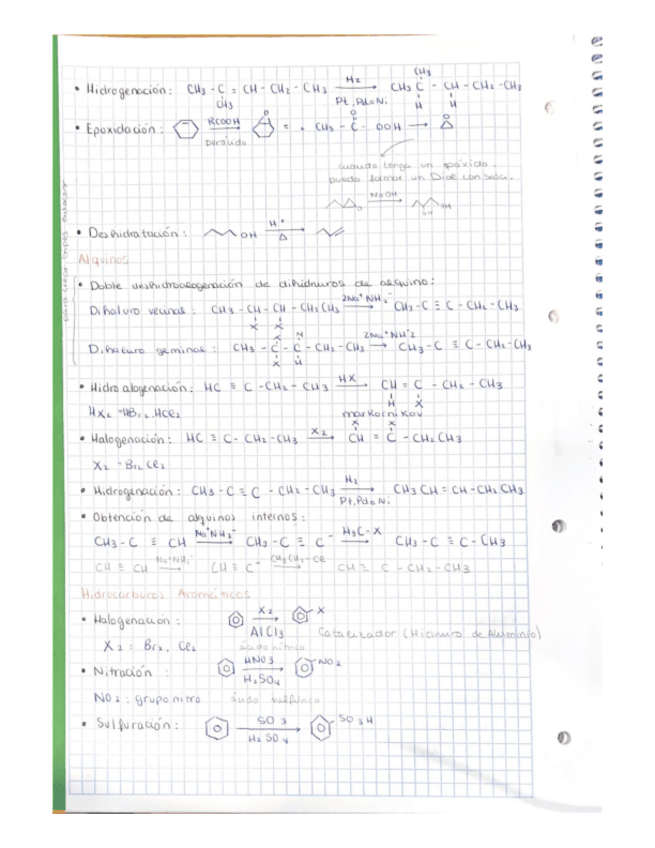 CH3
• Hidrogenación: CH3 - C = CH - CH2 - CH3 H2 CH3 C - CH - CH2 - CH3
CH3 Pt, Pd o Ni H H
• Epoxidación: RCOOH O = CH3 - C - OOH O
O
cuando tenga un epóxido
puedo formar un Diol con sosa.
NaOH
OH
• Deshidratación: OH H+
Δ
Alquinos
• Doble deshidroalogenación de dihidruros de alquino:
Dihaluro vecinal: CH3 - CH - CH - CH2 CH3 2Na+ NH2- CH3 - C ≡ C - CH2 - CH3
X X
X H
Dihaluro geminal: CH3 - C - C - CH2 - CH3 2Na+ NH-2 CH3 - C ≡ C - CH2 - CH3
X H
• Hidroalogenación: HC ≡ C - CH2 - CH3 HX CH = C - CH2 - CH3
H X
markornikov
X X
• Halogenación: HC ≡ C - CH2 - CH3 X2 CH = C - CH2 CH3
X2 = Br2 Cl2
• Hidrogenación: CH3 - C ≡ C - CH2 - CH3 H2 CH3 CH = CH - CH2 CH3
Pt, Pd o Ni
• Obtención de alquinos internos:
CH3 - C ≡ CH Na+NH2- CH3 - C ≡ C- H3C - X CH3 - C ≡ C - CH3
CH ≡ CH Na+NH2- CH ≡ C- CH3CH2 - Cl CH ≡ C - CH2 - CH3
Hidrocarburos Aromáticos
• Halogenación: X2 X
AlCl3 Catalizador
X2 = Br2, Cl2 ácido nítrico
• Nitración: HNO3 NO2
H2SO4
NO2: grupo nitro ácido sulfúrico
• Sulfuración: SO3 SO3H
H2SO4